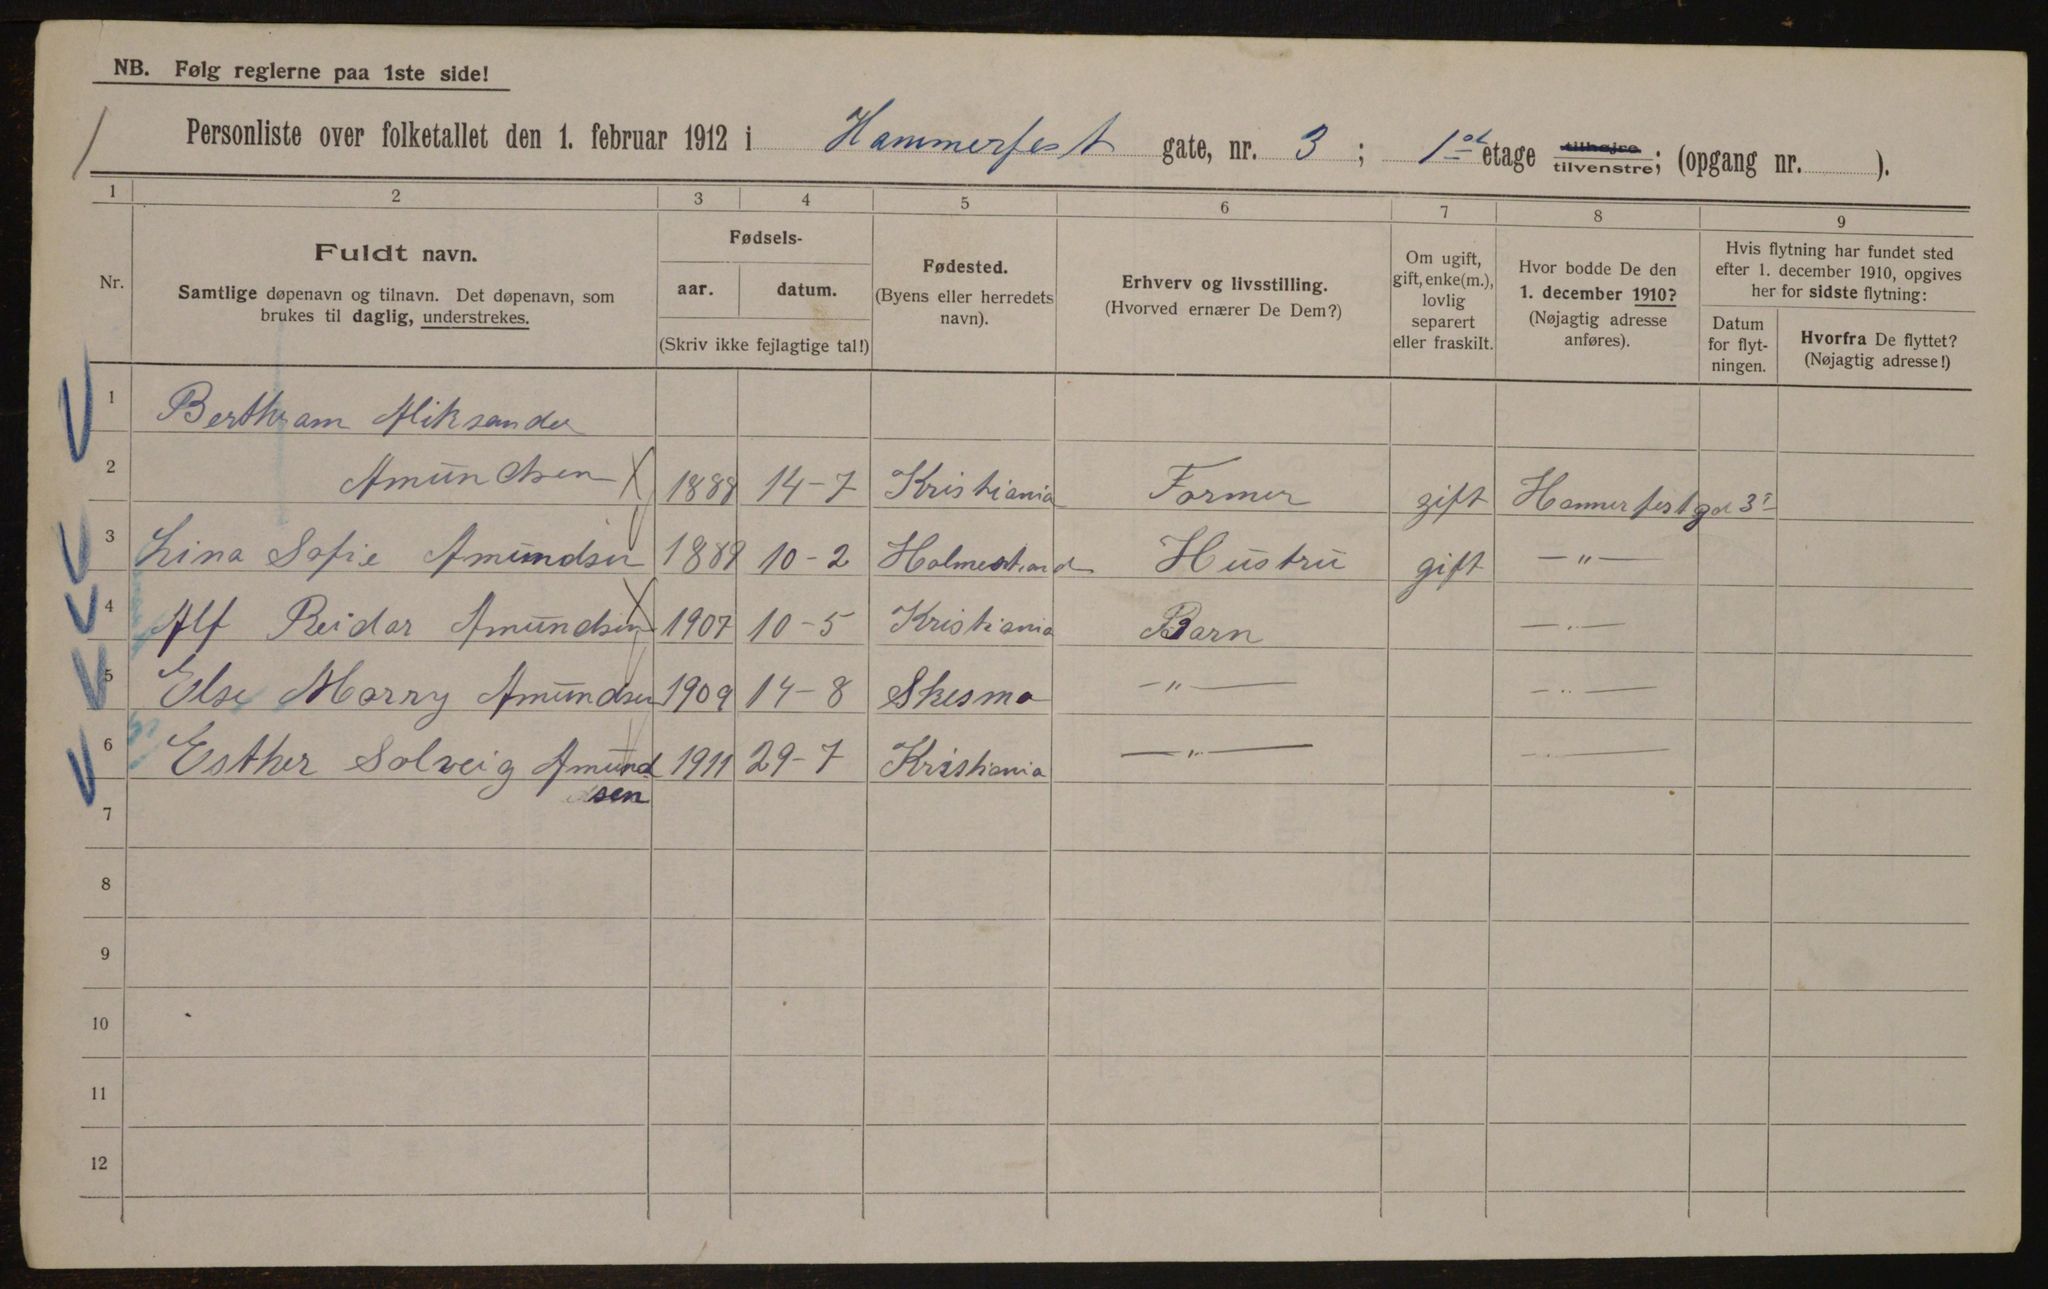 NB. Følg reglerne paa 1ste side!
Personliste over folketallet den 1. februar 1912 i Hammerfest gate, nr. 3 ; 1st etage tilhøjre tilvenstre; (opgang nr. ).
1 2 3 4 5 6 7 8 9
Nr.
Fuldt navn.
Samtlige døpenavn og tilnavn. Det døpenavn, som
brukes til daglig, understrekes.
Fødsels-
aar. datum.
(Skriv ikke fejlagtige tal!)
Fødested.
(Byens eller herredets
navn).
Erhverv og livsstilling.
(Hvorved ernærer De Dem?)
Om ugift,
gift, enke(m.),
lovlig
separert
eller fraskilt.
Hvor bodde De den
1. december 1910?
(Nøjagtig adresse
anføres).
Hvis flytning har fundet sted
efter 1. december 1910, opgives
her for sidste flytning:
Datum
for flyt-
ningen.
Hvorfra De flyttet?
(Nøjagtig adresse!)
1 Berthram Aliksander
2 Amundsen 1888 14-7 Kristiania Former gift Hammerfestgd 3
3 Lina Sofie Amundsen 1889 10-2 Holmestrand Hustru gift — „ —
4 Alf Reidar Amundsen 1907 10-5 Kristiania Barn — „ —
5 Else Marry Amundsen 1909 14-8 Skesmo — „ — — „ —
6 Esther Solveig Amund 1911 29-7 Kristiania — „ — — „ —
sen
7
8
9
10
11
12